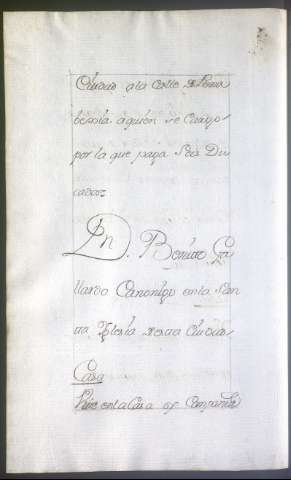 Ciudad a la Calle
bernia aquien se Cargo
por la que paga Seis Du
cados
Dn. Benito Ga
llardo Canonigo en la San
ta Iglesia de esta Ciudad
Casa
Vive en la Casa Compania